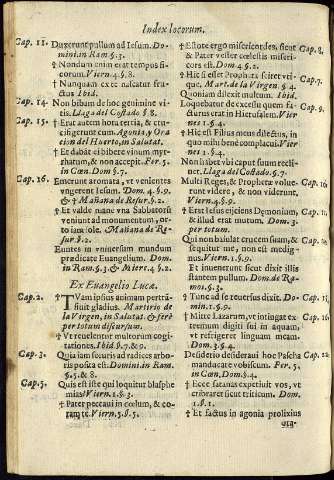 Index locorum.
Cap. 11. Duxerunt pullum ad Iesum. Do-
mini.in Ram.§.3.
† Nondum enim erat tempus fi-
corum. Viern.4.§.8.
† Nunquam ex te nascatur fru-
ctus Ibid.
Cap. 14. Non bibum de hoc genimine vi-
tis. Llaga del Costado §.8.
Cap. 15. † Erat autem hora tertia, & cru-
cifigerunt eum. Agonia, y Ora
cion del Huerto, in Salutat.
† Et dabāt ei bibere vinum myr-
rhatum, & non accepit. Fer.5.
in Cœn. Dom.§.7.
Cap. 16. † Emerunt aromata, vt venientes
vngerent Iesum. Dom.4.§.9.
& † Mañana de Resur.§.2.
† Et valde mane vna Sabbatorū
veniunt ad monumentum, or-
to iam sole. Mañana de Re-
sur.§.2.
Euntes in vniuersum mundum
prædicate Euangelium. Dom.
in Ram.§.3.& Mier.4.§.2.
Ex Euangelio Lucæ.
Cap. 2. † Tuam ipsius animam pertrā-
siuit gladius. Martirio de
la Virgen, in Salutat. & ferè
per totum discursum.
† Vt reuelentur multorum cogi-
tationes. Ibid.§.7.& 9.
Cap. 3. Quia iam securis ad radices arbo-
ris posita est. Domini.in Ram.
§.5.& 8.
Cap. 5. Quis est iste qui loquitur blasphe
mias? Viern.1.§.3.
† Pater peccaui in cœlum, & co-
ram te. Viern.5.§.5.
† Estote ergo misericordes, sicut Cap. 6.
& Pater vester cœlestis miseri-
cors est. Dom.4.§.2.
† Hic si esset Propheta sciret vti- Cap. 7.
que. Mart. de la Virgen.§.4.
Quoniam dilexit multum. Ibid.
Loquebatur de excessu quem fa- Cap. 9.
cturus erat in Hierusalem. Vier
nes 1.§.4.
† Hic est Filius meus dilectus, in
quo mihi benè complacui. Vier
nes 1.§.4.
Non habet vbi caput suum recli-
net. Llaga del Costado.§.7.
Multi Reges, & Prophetæ volue- Cap. 10
runt videre, & non viderunt,
Viern.4.§.9.
† Erat Iesus eijciens Dęmonium, Cap. 11
& illud erat mutum. Dom.3.
per totum.
Qui non baiulat crucem suam, &
sequitur me, non est me dig-
nus. Viern.1.§.9.
Et inuenerunt sicut dixit illis
stantem pullum. Dom.de Ra-
mos 1.§.3.
† Tunc ad se reuersus dixit. Do-
min.1.§.9.
† Mitte Lazarum, vt intingat ex-
tremum digiti sui in aquam,
vt refrigeret linguam meam.
Dom.3.§.4.
Desiderio desideraui hoc Pascha Cap. 22
manducare vobiscum. Fer.5.
in Cœn. Dom.§.4.
† Ecce satanas expetiuit vos, vt
cribraret sicut triticum. Dom.
1.§.1.
† Et factus in agonia prolixius
ora-